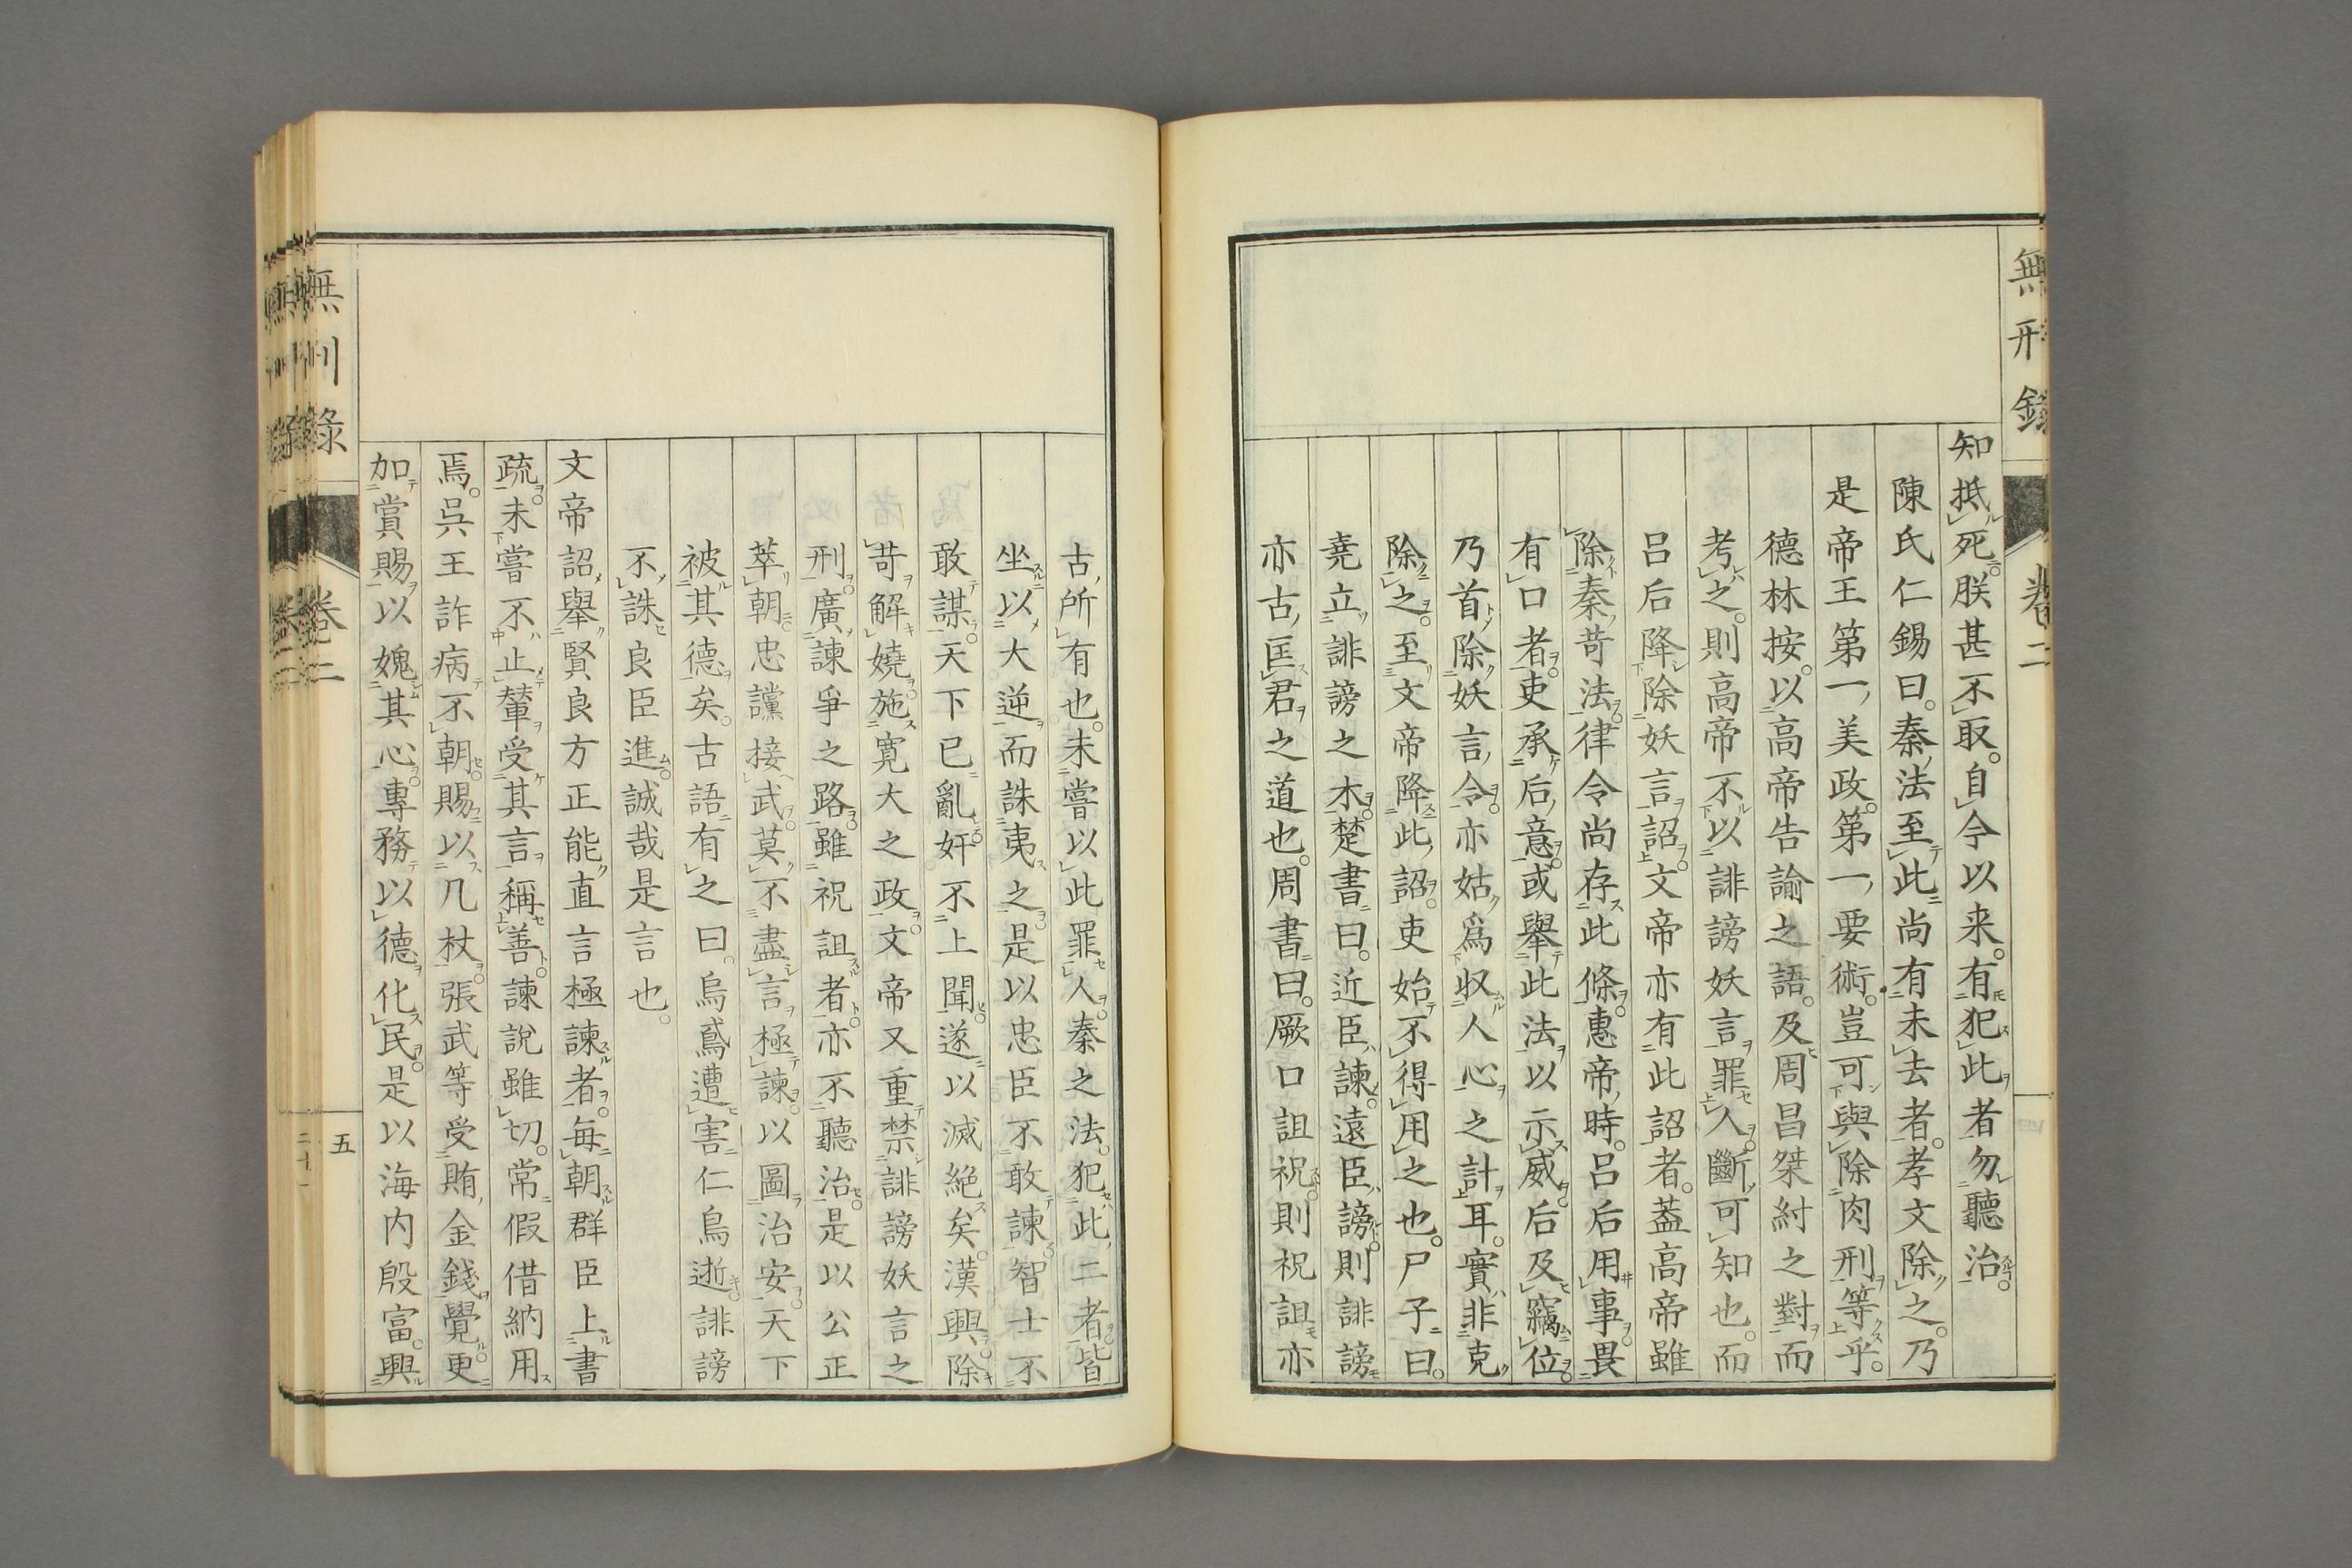 無刑錄
卷二
知抵死。朕甚不取。自今以来。有犯此者勿聽治。
陳氏仁錫曰。秦法至此尚有未去者。孝文除之。乃
是帝王第一美政。第一要術。豈可與除肉刑等乎。
德林按。以高帝告諭之語。及周昌桀紂之對而
考之。則高帝不以誹謗妖言罪人。斷可知也。而
呂后降除妖言詔。文帝亦有此詔者。蓋高帝雖
除秦苛法律令尚存此條。惠帝時。呂后用事。畏
有口者。吏承后意。或舉此法以示威。后及竊位。
乃首除妖言令。亦姑為收人心之計耳。實非克
除之。至文帝降此詔。吏始不得用之也。尸子曰。
堯立誹謗之木。楚書曰。近臣諫。遠臣謗。則誹謗
亦古匡君之道也。周書曰。厥口詛祝。則祝詛亦
古所有也。未嘗以此罪人。秦之法。犯此二者皆
坐以大逆而誅夷之。是以忠臣不敢諫。智士不
敢謀。天下已亂。奸不上聞。遂以滅絕矣。漢興。除
苛解嬈。施寬大之政。文帝又重禁誹謗妖言之
刑。廣諫爭之路。雖祝詛者。亦不聽治。是以公正
萃朝。忠讜接武。莫不盡言極諫。以圖治安。天下
被其德矣。古語有之曰。烏鳶遭害。仁鳥逝。誹謗
不誅良臣進。誠哉是言也。
文帝詔舉賢良方正能直言極諫者。每朝群臣上書
疏。未嘗不止輦受其言。稱善。諫說雖切。常假借納用
焉。呉王詐病不朝。賜以几杖。張武等受賄金錢。覺。更
加賞賜。以媿其心。專務以德化民。是以海内殷富。興
無刑錄
卷二
五